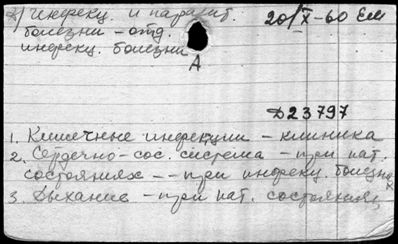 2) Инфекц. и паразит.
болезни – отд.
инфекц. болезни
20/X–60 Ем
А
Д23797
1. Кишечные инфекции – клиника
2. Сердечно-сос. система – при пат.
состояниях – – при инфекц. болезнях
3. Дыхание – при пат. состояниях